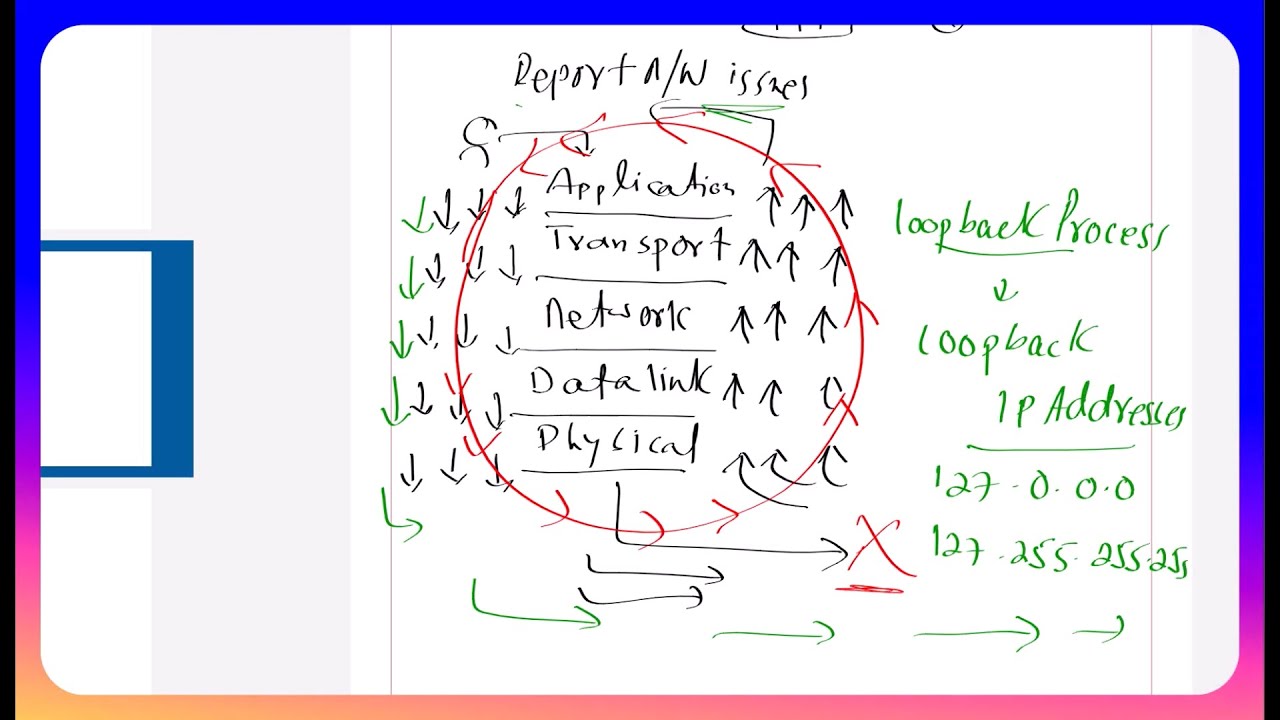 Report N/W issues
Application
Transport
Network
Datalink
Physical
loopback Process
loopback
IP Addresses
127.0.0.0
127.255.255.255